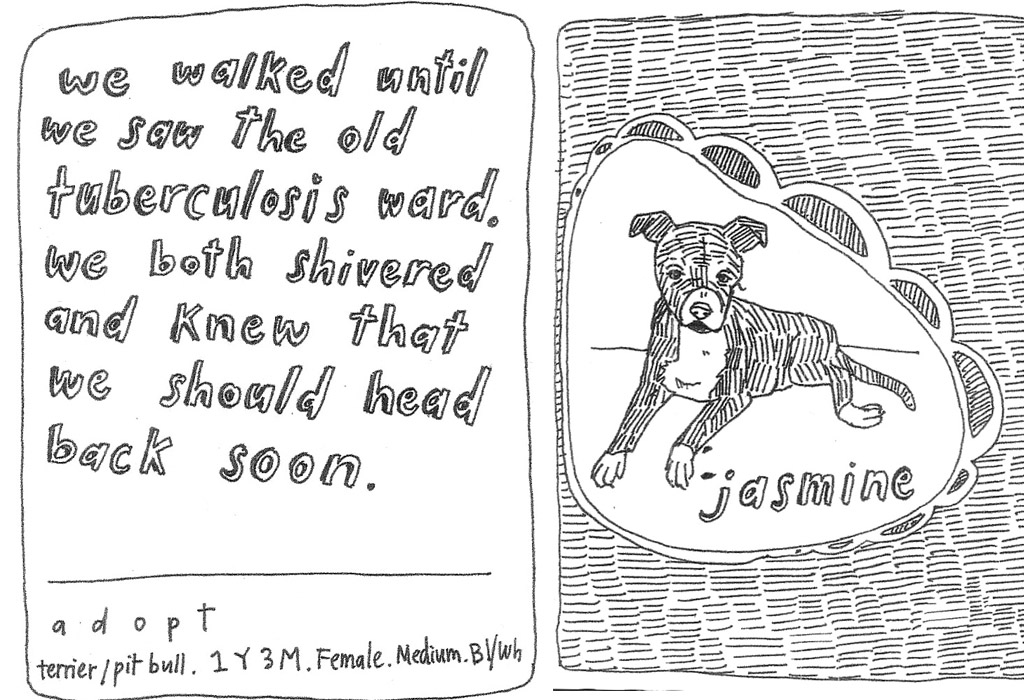 we walked until
we saw the old
tuberculosis ward.
we both shivered
and knew that
we should head
back soon.
adopt
terrier/pit bull. 1 Y 3 M. Female. Medium. Bl/Wh
jasmine